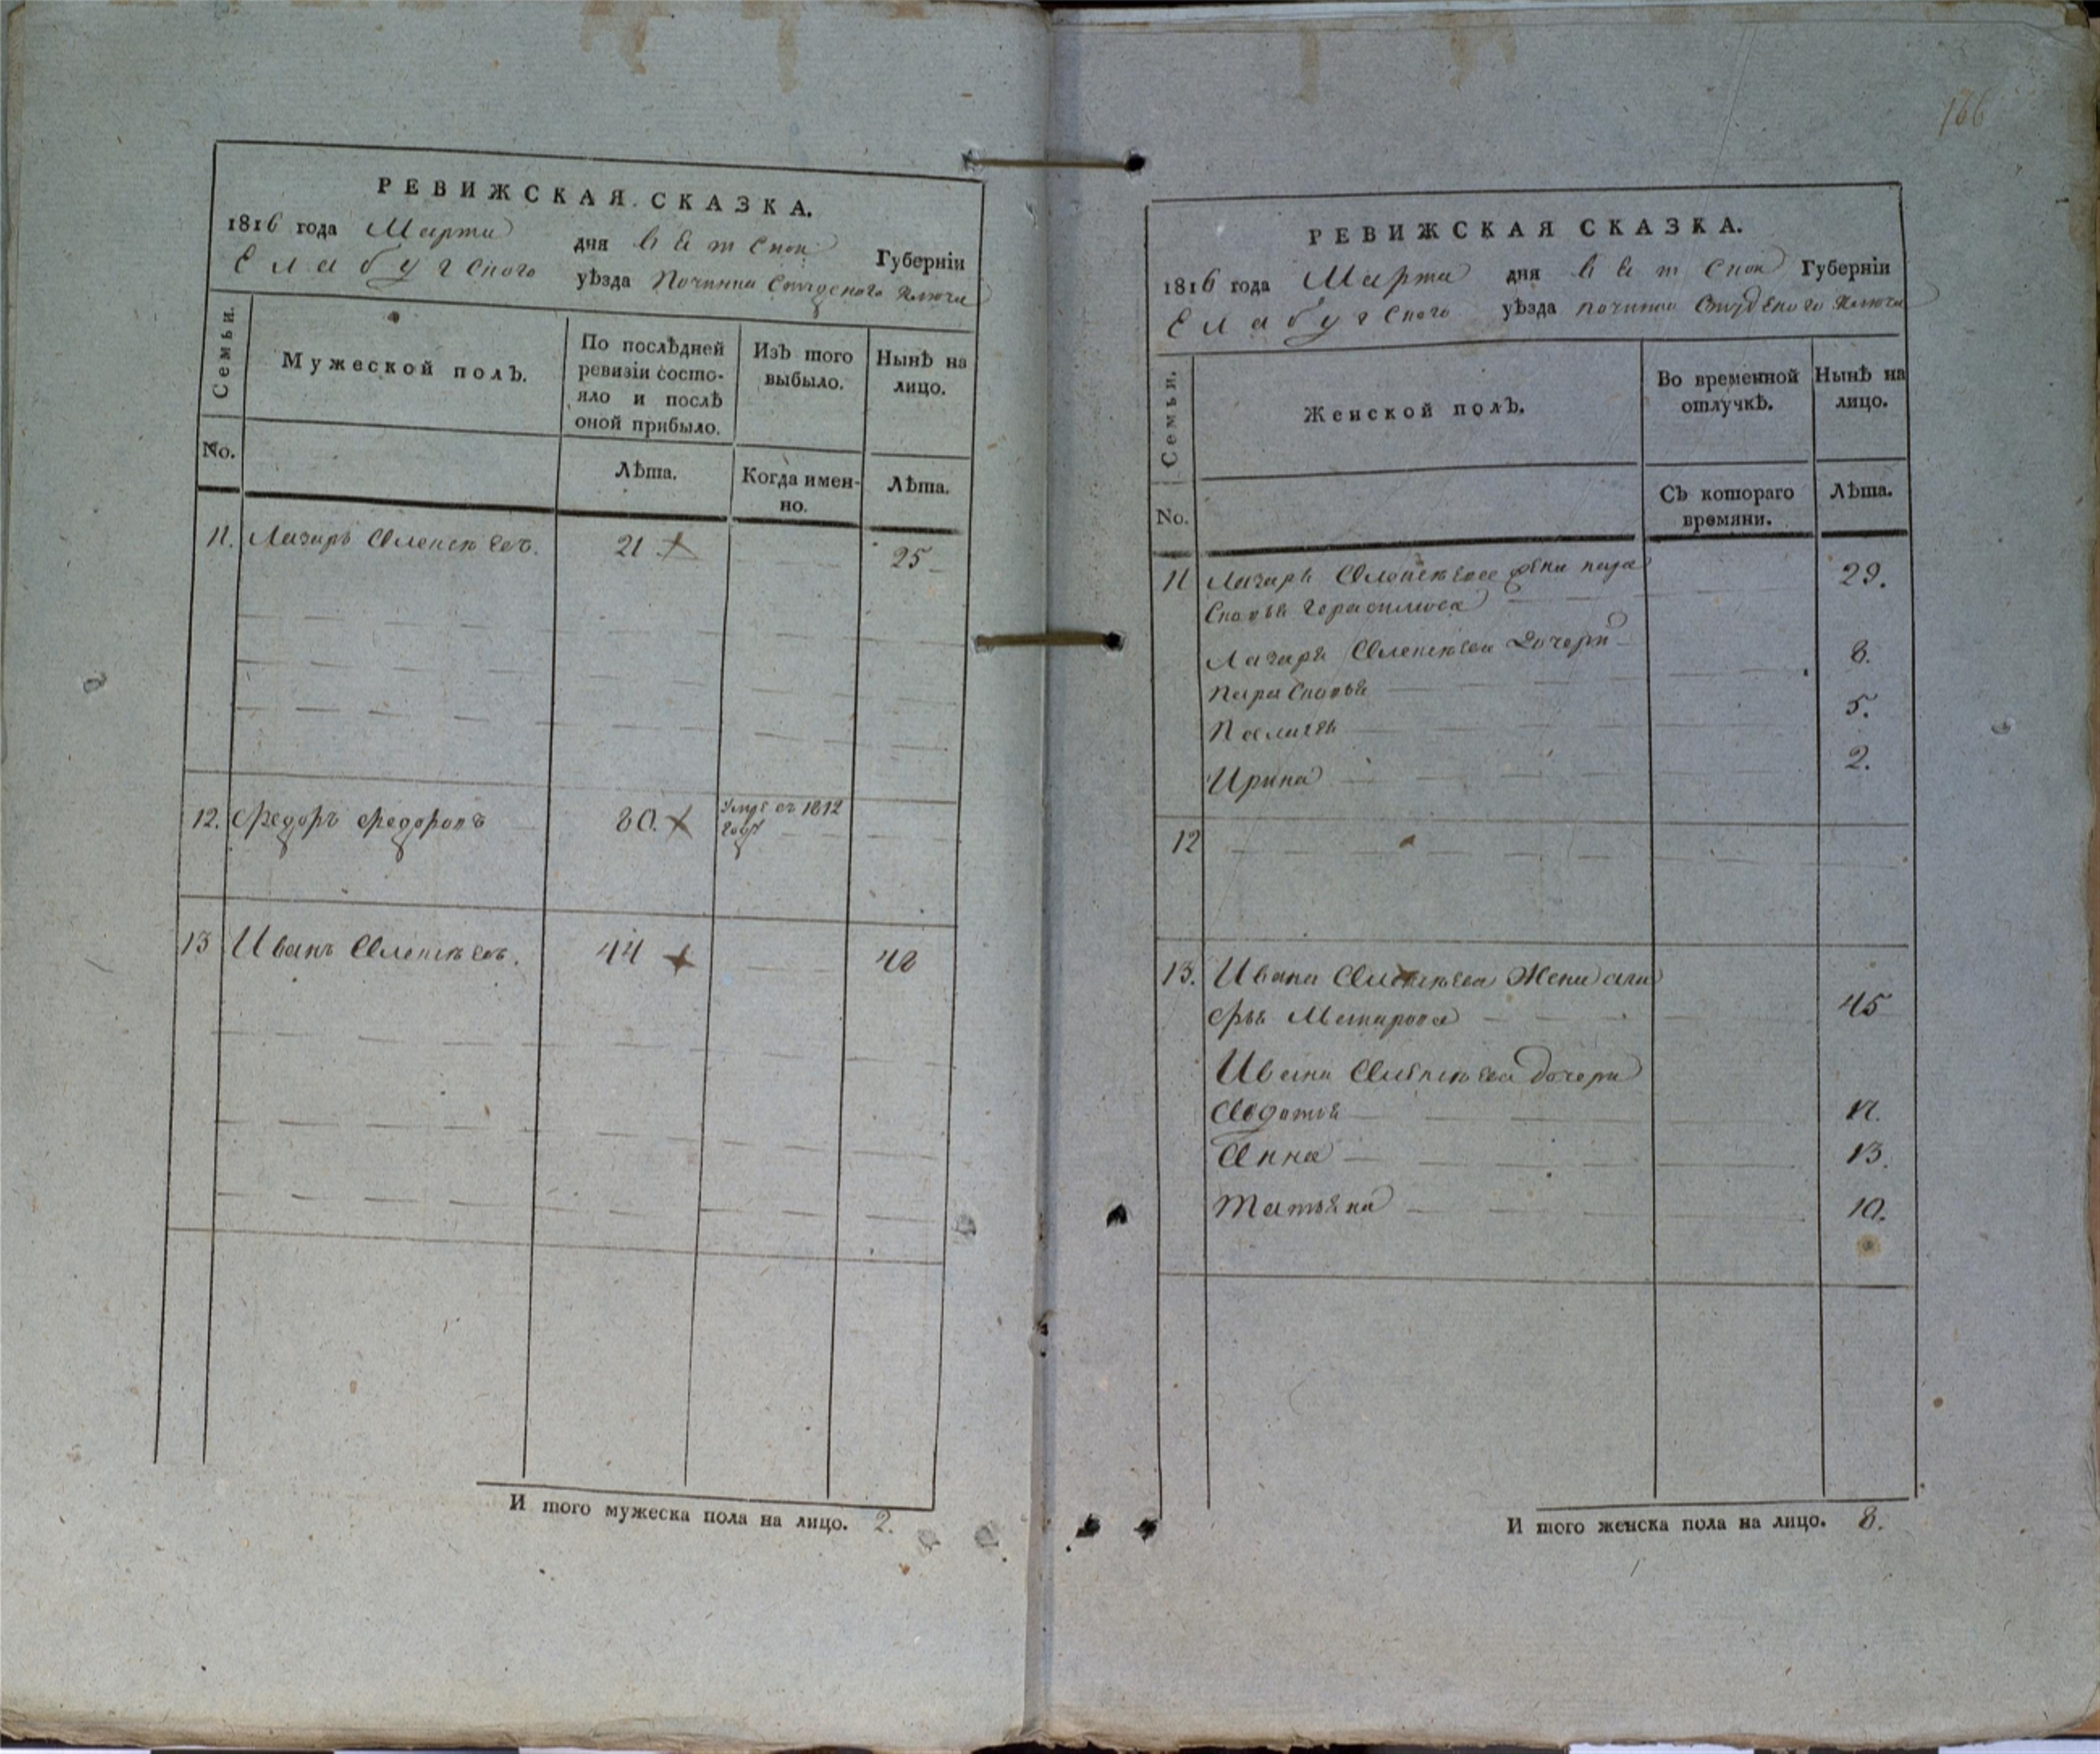 166
РЕВИЖСКАЯ СКАЗКА.
1816 года Марта дня Вятской Губерніи
Елабугского уѣзда Починка Студеного Ключа
Семьи.
Мужеской полъ.
По послѣдней ревизіи состо-
яло и послѣ
оной прибыло.
Изъ того
выбыло.
Нынѣ на
лицо.
No.
Лѣта.
Когда имен-
но.
Лѣта.
11. Лазарь Алексѣевъ. 21 25
12. Федоръ Федоровъ 80. Умре въ 1812
году
13 Иванъ Алексѣевъ. 44 48
И того мужеска пола на лицо. 2.
РЕВИЖСКАЯ СКАЗКА.
1816 года Марта дня Вятской Губерніи
Елабугского уѣзда починка Студеного Ключа
Семьи.
Женской полъ.
Во временной
отлучкѣ.
Нынѣ на
лицо.
No.
Съ котораго
времяни.
Лѣта.
11 Лазаря Алексѣева жена пара
сковья Герасимова 29.
Лазаря Алексѣева дочери
парасковья 8.
5.
Ирина 2.
12
13. Ивана Алексѣева жена
Ивана Алексѣева дочери 45
Авдотья 17.
Анна 13.
Татьяна 10.
И того женска пола на лицо. 8.